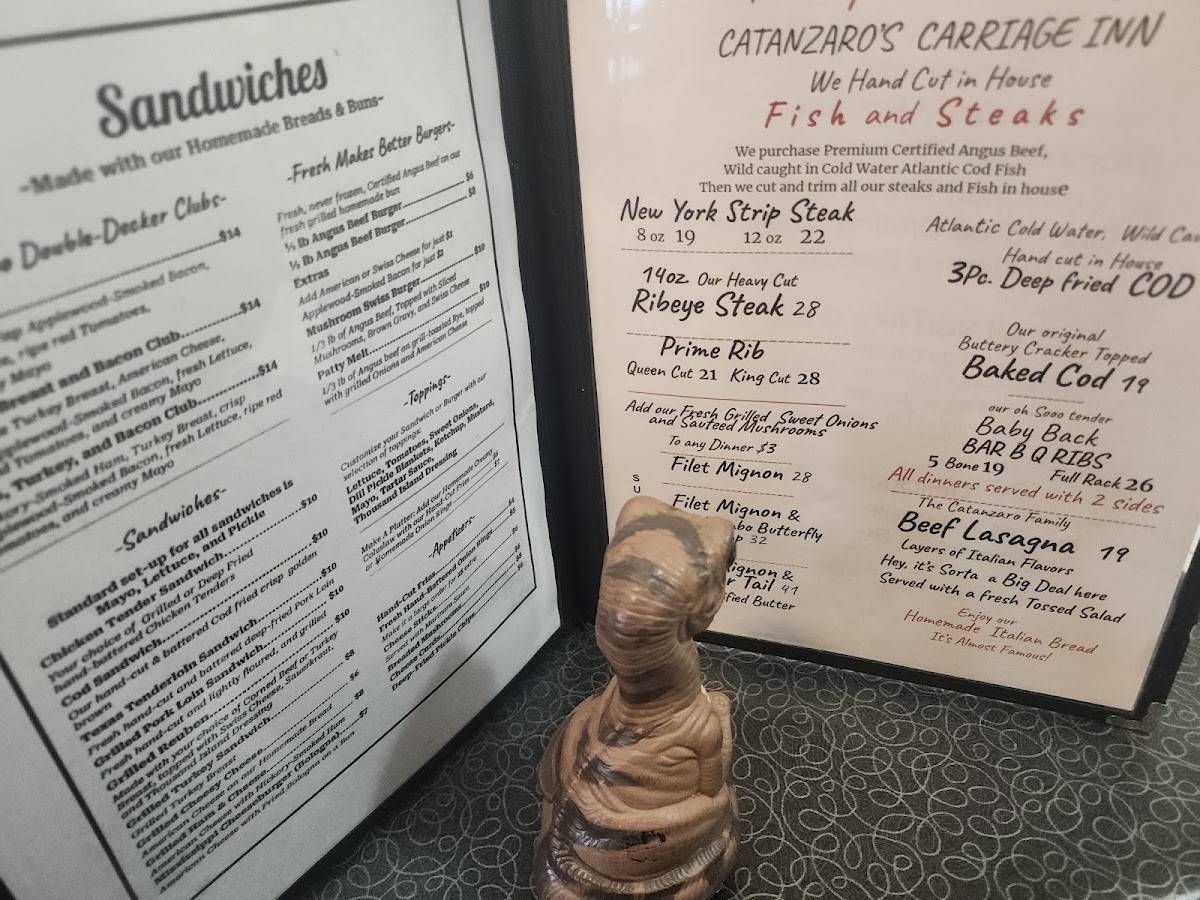 Sandwiches
-Made with our Homemade Breads & Buns-
Double-Decker Clubs-
$14
Applewood-Smoked Bacon,
ripe red Tomatoes,
Mayo
Breast and Bacon Club..........$14
Turkey Breast, American Cheese,
Applewood-Smoked Bacon, fresh Lettuce,
Tomatoes, and creamy Mayo
Turkey, and Bacon Club..........$14
Ham, Turkey Breast, crisp
Bacon, fresh Lettuce, ripe red
and creamy Mayo
-Sandwiches-
Standard set-up for all sandwiches is
Mayo, Lettuce, and Pickle
Chicken Tender Sandwich..........$10
Your choice of Grilled or Deep Fried
hand-battered Chicken Tenders
Cod Sandwich..........$10
Our hand-cut & battered Cod fried crisp golden
brown
Texas Tenderloin Sandwich..........$10
Fresh hand-cut and battered deep-fried Pork Loin
Grilled Pork Loin Sandwich..........$10
Fresh hand-cut and lightly floured, and grilled
Grilled Reuben..........$10
Made with your choice of Corned Beef or Turkey
Breast, topped with Swiss Cheese, Sauerkraut,
and Thousand Island Dressing
Grilled Turkey Sandwich..........$8
Grilled Turkey Breast
Grilled Cheesy Cheese..........$6
American Cheese on our Homemade Bread
Grilled Ham & Cheese..........$8
American Cheese with Hickory-Smoked Ham
Mississippi Cheeseburger (Bologna)..........$7
American Cheese with Fried Bologna on a Bun
-Fresh Makes Better Burgers-
Fresh, never frozen, Certified Angus Beef on our
fresh grilled homemade bun
⅓ lb Angus Beef Burger..........$6
½ lb Angus Beef Burger..........$8
Extras
Add American or Swiss Cheese for just $1
Applewood-Smoked Bacon for just $2
Mushroom Swiss Burger..........$10
1/3 lb of Angus Beef, Topped with Sliced
Mushrooms, Brown Gravy, and Swiss Cheese
Patty Melt..........$10
1/3 lb of Angus beef on grill-toasted Rye, topped
with grilled Onions and American Cheese
-Toppings-
Customize your Sandwich or Burger with our
selection of toppings:
Lettuce, Tomatoes, Sweet Onions,
Dill Pickle Blankets, Ketchup, Mustard,
Mayo, Tartar Sauce,
Thousand Island Dressing
Make A Platter: Add our Homemade Creamy
Coleslaw with our Hand-Cut Fries..........$6
or Homemade Onion Rings..........$7
-Appetizers-
Hand-Cut Fries..........$4
Fresh Hand-Battered Onion Rings..........$5
Make it a large order for $2 extra
Cheese Sticks
Served with Marinara Sauce
Breaded Mushrooms
Cheese Curds
Deep-Fried Pickle Chips
CATANZARO'S CARRIAGE INN
We Hand Cut in House
Fish and Steaks
We purchase Premium Certified Angus Beef,
Wild caught in Cold Water Atlantic Cod Fish
Then we cut and trim all our steaks and Fish in house
New York Strip Steak
8 oz 19 12 oz 22
14oz Our Heavy Cut
Ribeye Steak 28
Prime Rib
Queen Cut 21 King Cut 28
Add our Fresh Grilled Sweet Onions
and Sauteed Mushrooms
To any Dinner $3
Filet Mignon 28
S
U
Filet Mignon &
Butterfly
32
ignon &
Tail 41
Butter
Atlantic Cold Water, Wild
Hand cut in House
3Pc. Deep fried COD
Our original
Buttery Cracker Topped
Baked Cod 19
our oh Sooo tender
Baby Back
BAR B Q RIBS
5 Bone 19 Full Rack 26
All dinners served with 2 sides
The Catanzaro Family
Beef Lasagna 19
Layers of Italian Flavors
Hey, it's Sorta a Big Deal here
Served with a fresh Tossed Salad
Enjoy our
Homemade Italian Bread
It's Almost Famous!